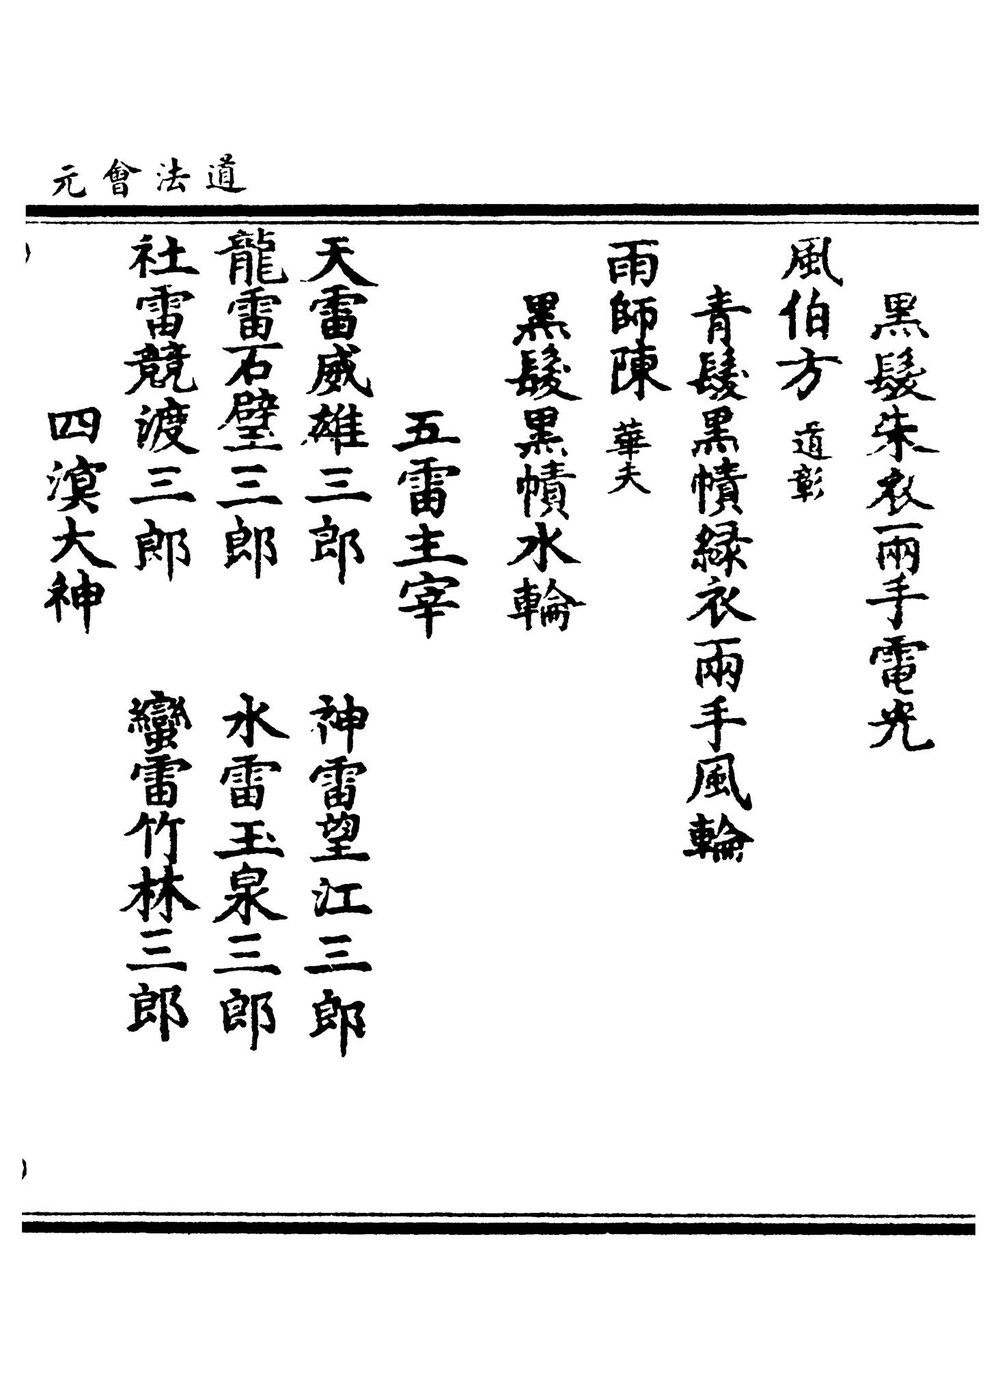 道法會元
黑髮朱衣兩手電光
風伯方道彰
青髮黑幘綠衣兩手風輪
雨師陳華夫
黑髮黑幘水輪
五雷主宰
天雷威雄三郎 神雷望江三郎
龍雷石璧三郎 水雷玉泉三郎
社雷競渡三郎 蠻雷竹林三郎
四溟大神